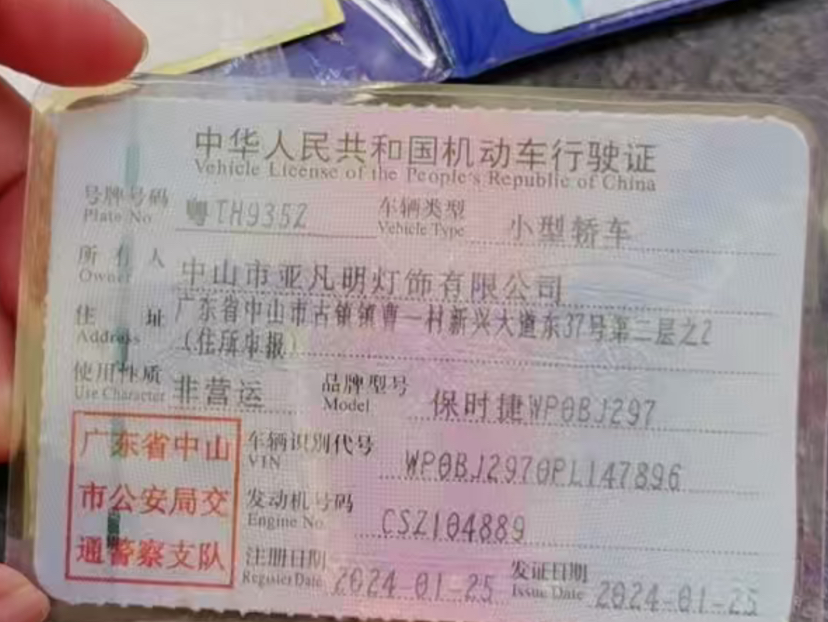 中华人民共和国机动车行驶证
Vehicle License of the People's Republic of China
号牌号码 粤TH935Z 车辆类型 小型轿车
Plate No. Vehicle Type
所有人 中山市亚凡明灯饰有限公司
Owner
住址 广东省中山市古镇镇曹一村新兴大道东37号第二层之2
Address (住所申报)
使用性质 非营运 品牌型号 保时捷WP0BJ297
Use Character Model
广东省中山
市公安局交
通警察支队
车辆识别代号 WP0BJ2970PL147896
VIN
发动机号码 CSZ104889
Engine No.
注册日期 2024-01-25 发证日期 2024-01-25
Register Date Issue Date